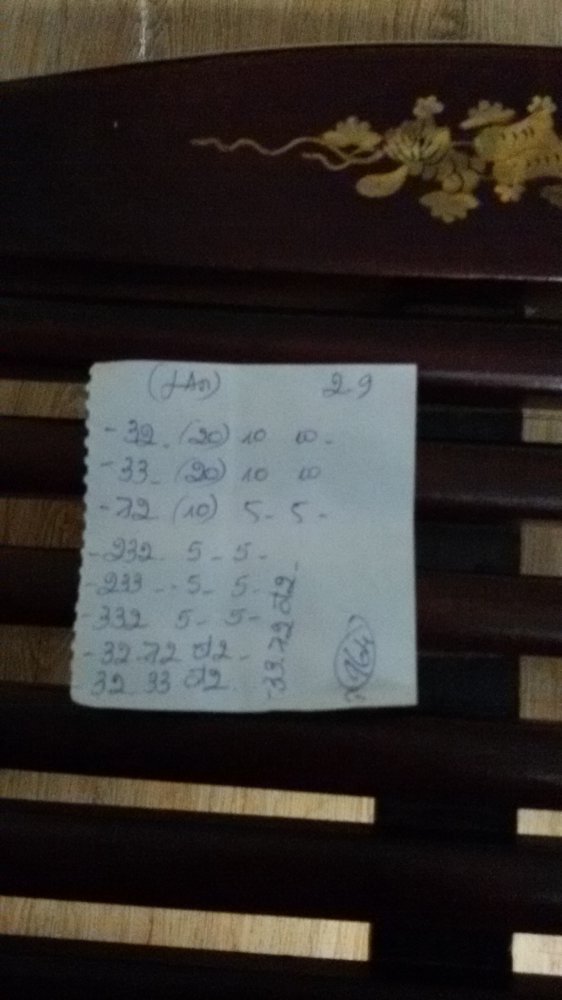 (LAn) 2-9
- 32 - (20) 10 10 -
- 33 - (20) 10 10
- 72 (10) 5 - 5 -
- 232 5 - 5 -
- 233 - - 5 - 5 -
- 332 5 - 5 -
- 32 72 đ2 -
32 33 đ2
- 33 72 đ2 -